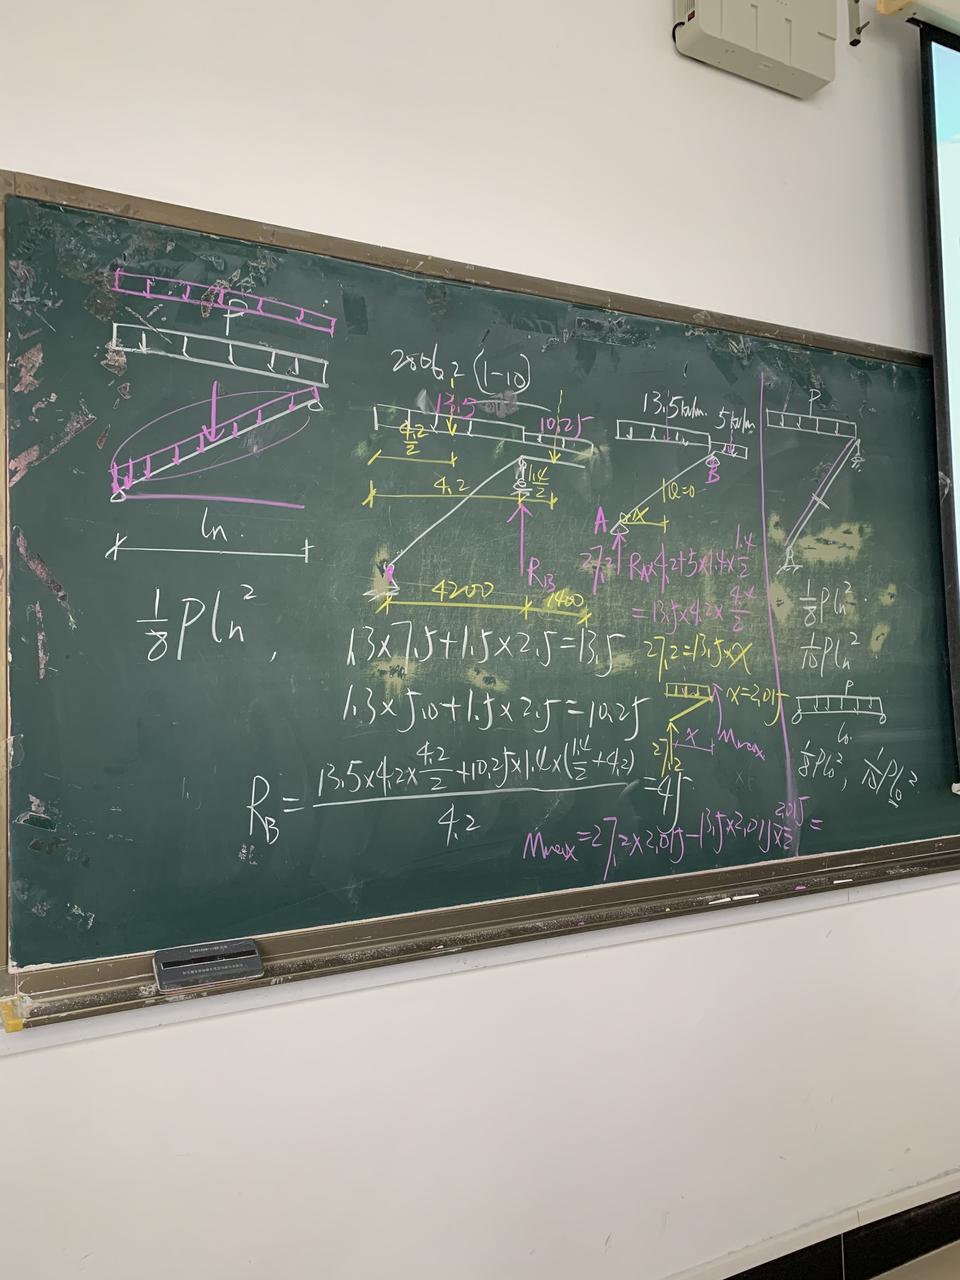 P
ln.
1/8 Pln²,
2006.2 (1-10)
13.5
10.25
4.2/2
4.2
1.4/2
R_B
4200
1400
1.3×7.5+1.5×2.5=13.5
1.3×5.0+1.5×2.5=10.25
R_B = (13.5×4.2×4.2/2+10.25×1.4×(1.4/2+4.2))/4.2 =45
13.5kN/m
5kN/m
B
Q=0
A
x
27.2
R_A×4.2+5×1.4×1.4/2
=13.5×4.2×4.2/2
27.2=13.5×x
x=2.015
x
Mmax
27.2
Mmax=27.2×2.015-13.5×2.015×2.015/2=
P
1/8 Pln²
1/10 Pln²
P
l₀
1/8 Pl₀², 1/10 Pl₀²